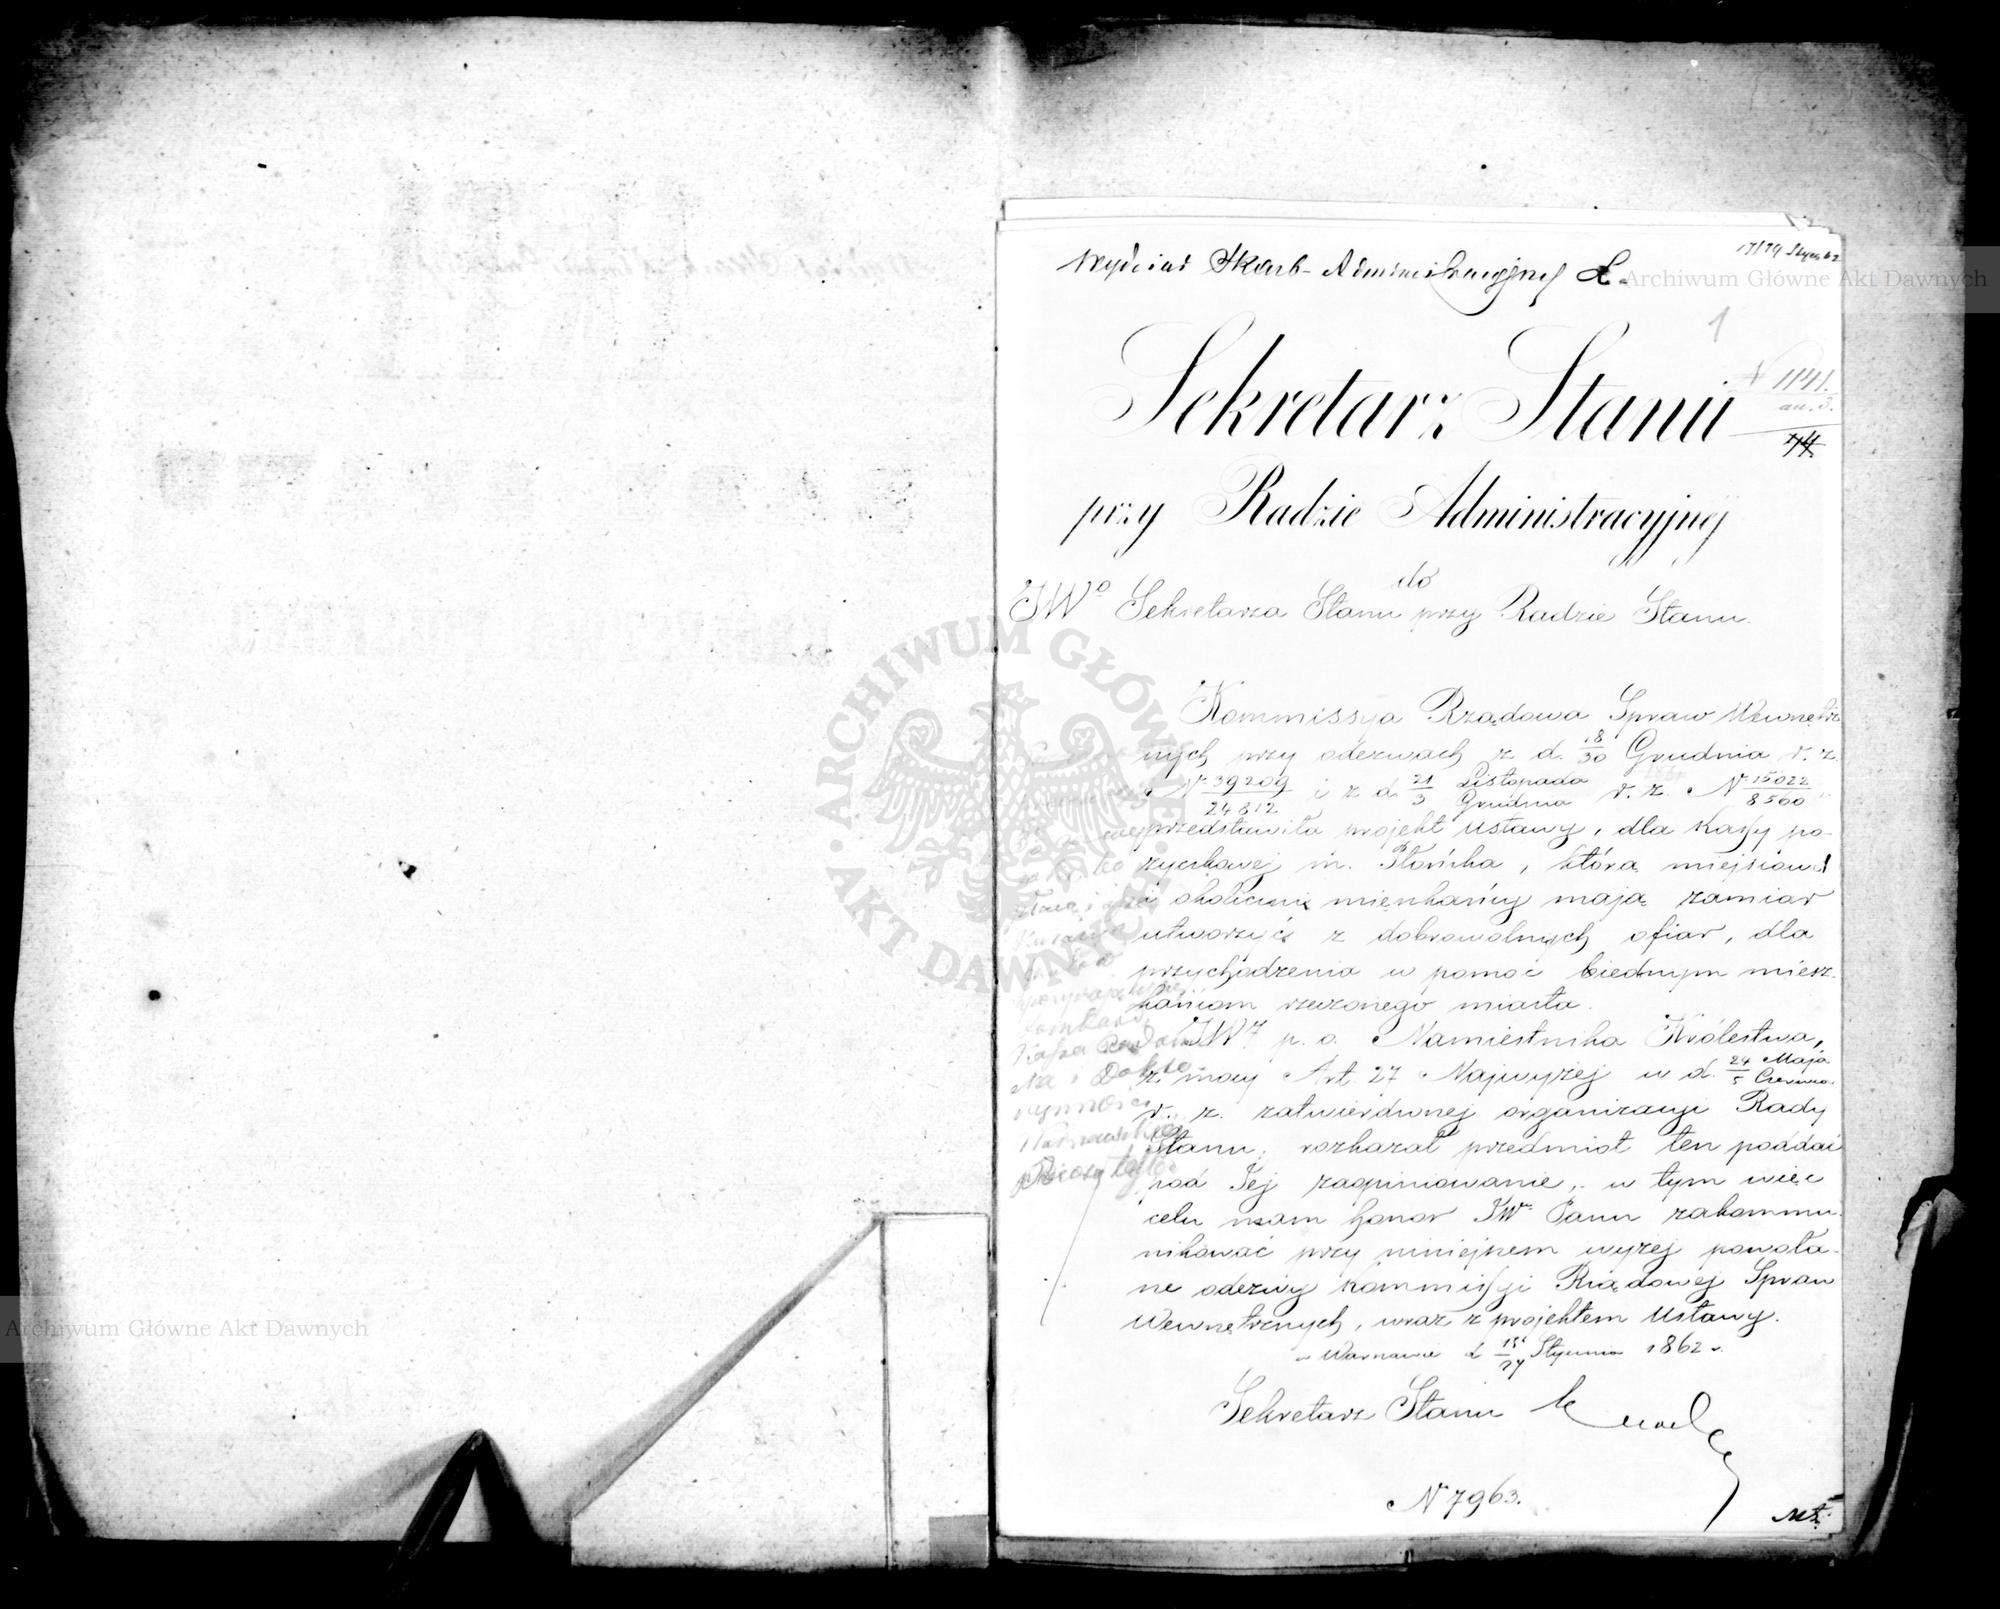 17/29 Stycz 62
Wydział Skarb-Administracyjny
1
Sekretarz Stanu
N 1141.
przy Radzie Administracyjnej
do
JWo Sekretarza Stanu przy Radzie Stanu.
Kommissya Rządowa Spraw Wewnętrz
nych przy odezwach z d. 18/30 Grudnia r. z.
N 39209/24812 i z d. 21/3 Listopada/Grudnia r. z. N 15022/8560
przedstawiła projekt Ustawy, dla Kassy po-
życzkowej m. Płońska, którą miejscowi
i okoliczni mieszkańcy mają zamiar
utworzyć z dobrowolnych ofiar, dla
przychodzenia w pomoc biednym miesz-
kańcom rzeczonego miasta.
JW p. o. Namiestnika Królestwa,
z mocy Art. 27 Najwyżej w d. 24 Maja/5 Czerwca
r. z. zatwierdzonej organizacyi Rady
Stanu, rozkazał przedmiot ten poddać
pod Jej zaopiniowanie, w tym więc
celu mam honor JW Panu zakommu-
nikować przy niniejszem wyżej powoła-
ne odezwy Kommissyi Rządowej Spraw
Wewnętrznych, wraz z projektem Ustawy.
w Warszawie d Stycznia 1862 r.
Sekretarz Stanu
N 7963.
Archiwum Główne Akt Dawnych
Archiwum Główne Akt Dawnych
ARCHIWUM GŁÓWNE AKT DAWNYCH